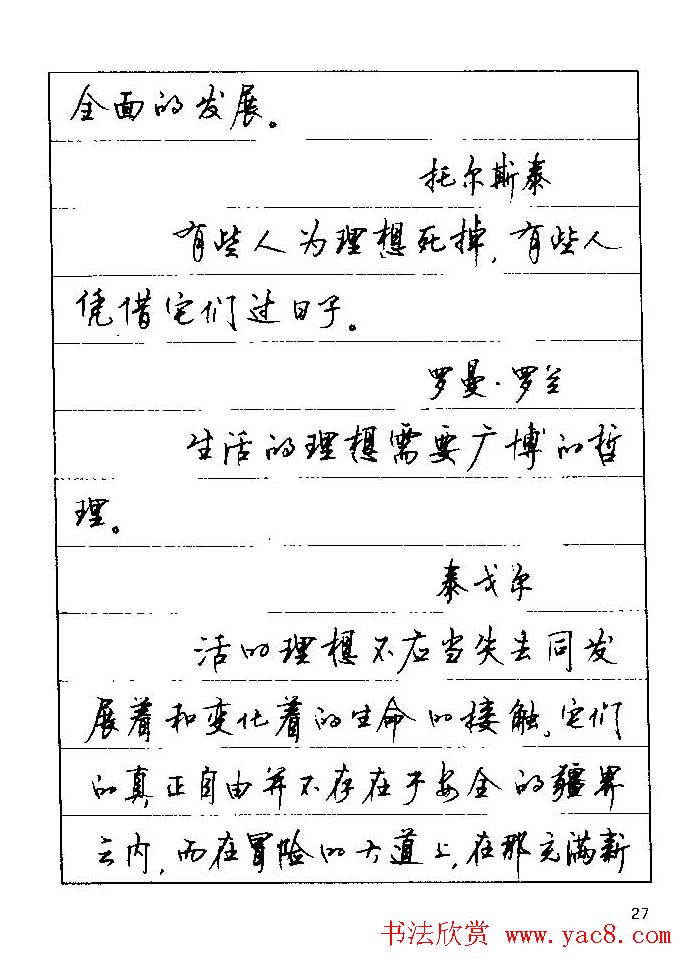 全面的发展。
托尔斯泰
有些人为理想死掉，有些人
凭借它们过日子。
罗曼·罗兰
生活的理想需要广博的哲
理。
泰戈尔
活的理想不应当失去同发
展着和变化着的生命的接触，它们
的真正自由并不存在于安全的疆界
之内，而在冒险的大道上，在那充满新
27
书法欣赏 www.yac8.com